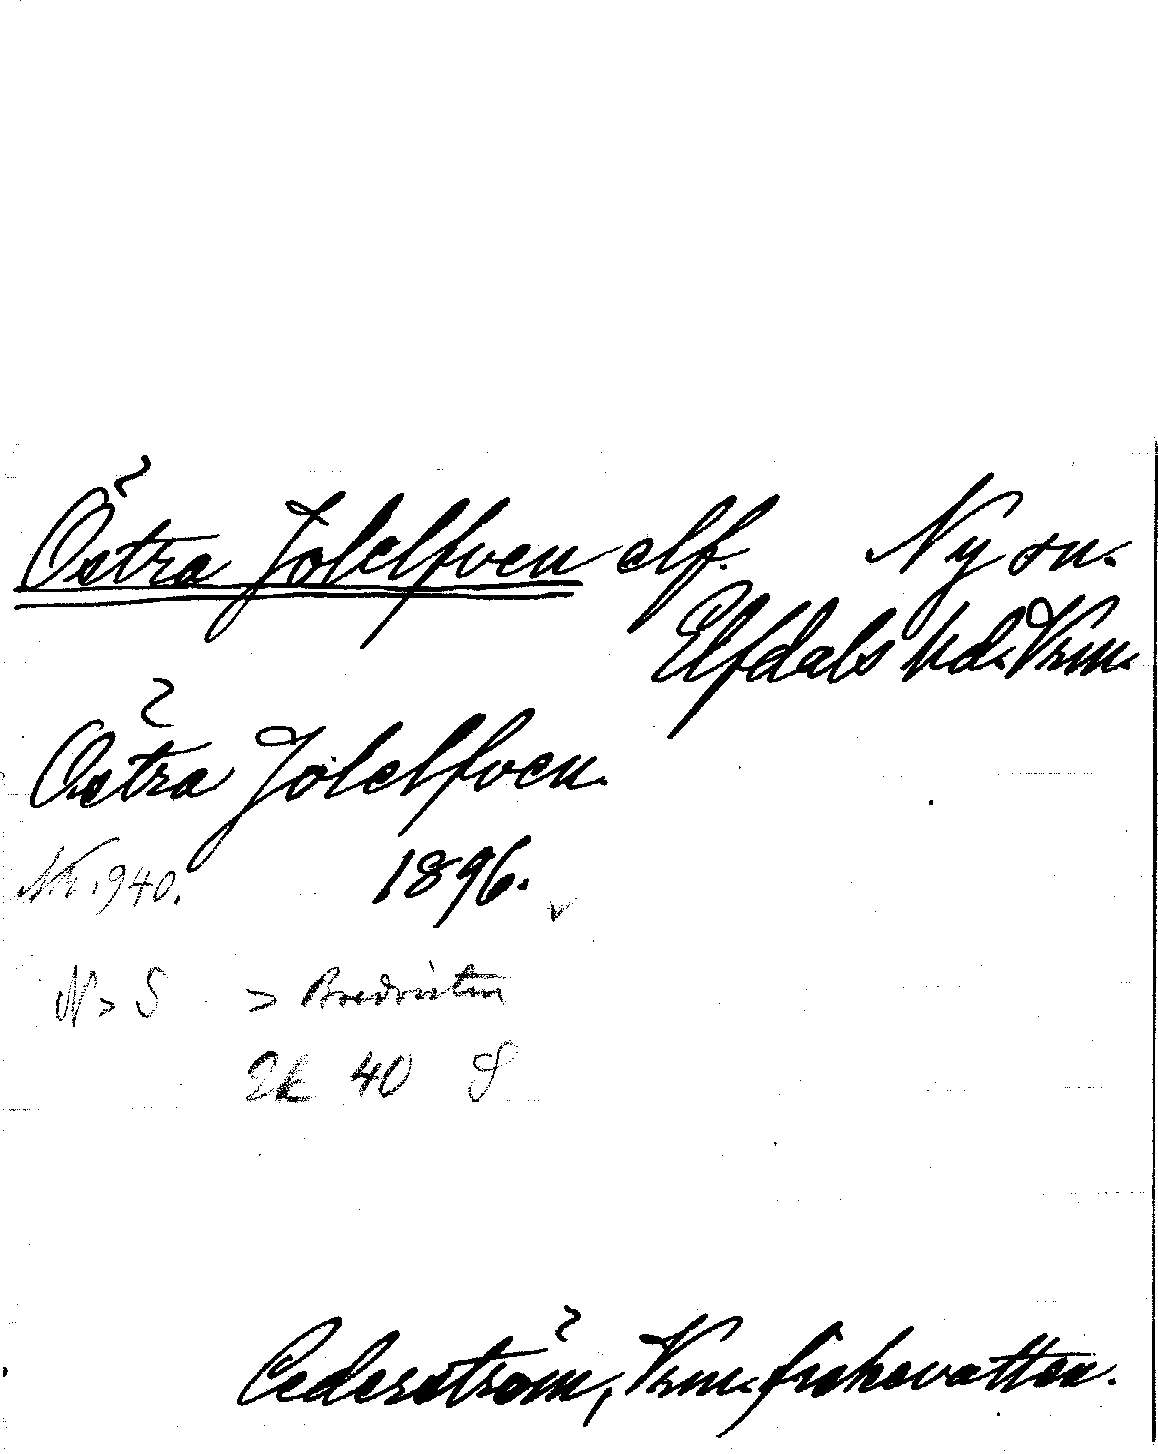 Östra Jolelfven elf. Ny sn.
Elfdals hd. Vrm.
Östra Jolelfven.
Nr. 1940. 1896. v
N > S > Bredvisten
2k 40 S
Cederström, Vrm. fiskevatten.